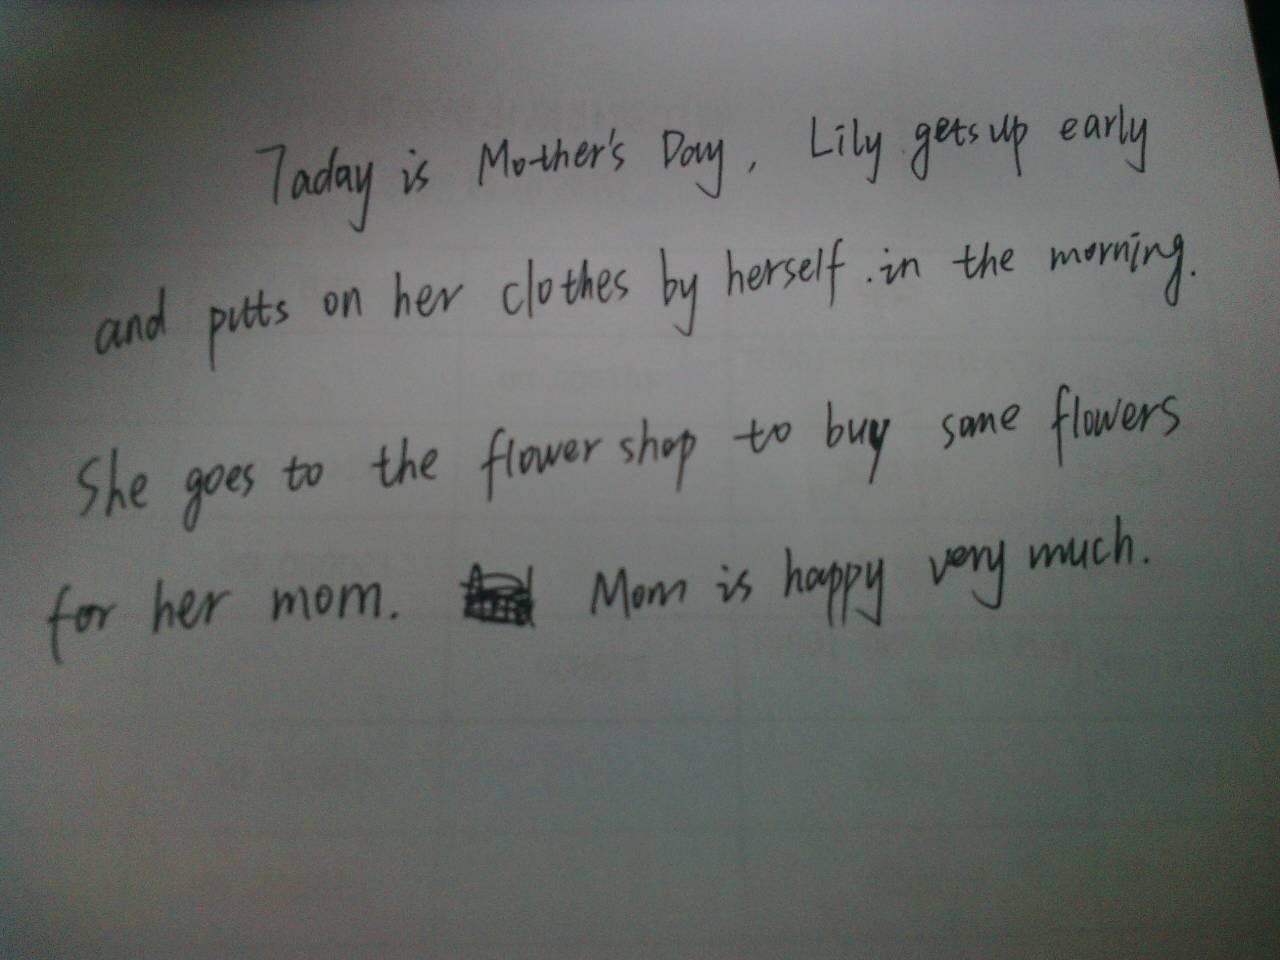 Taday is Mother's Day, Lily gets up early
and putts on her clothes by herself. in the morning.
She goes to the flower shop to buy some flowers
for her mom. Mom is happy very much.